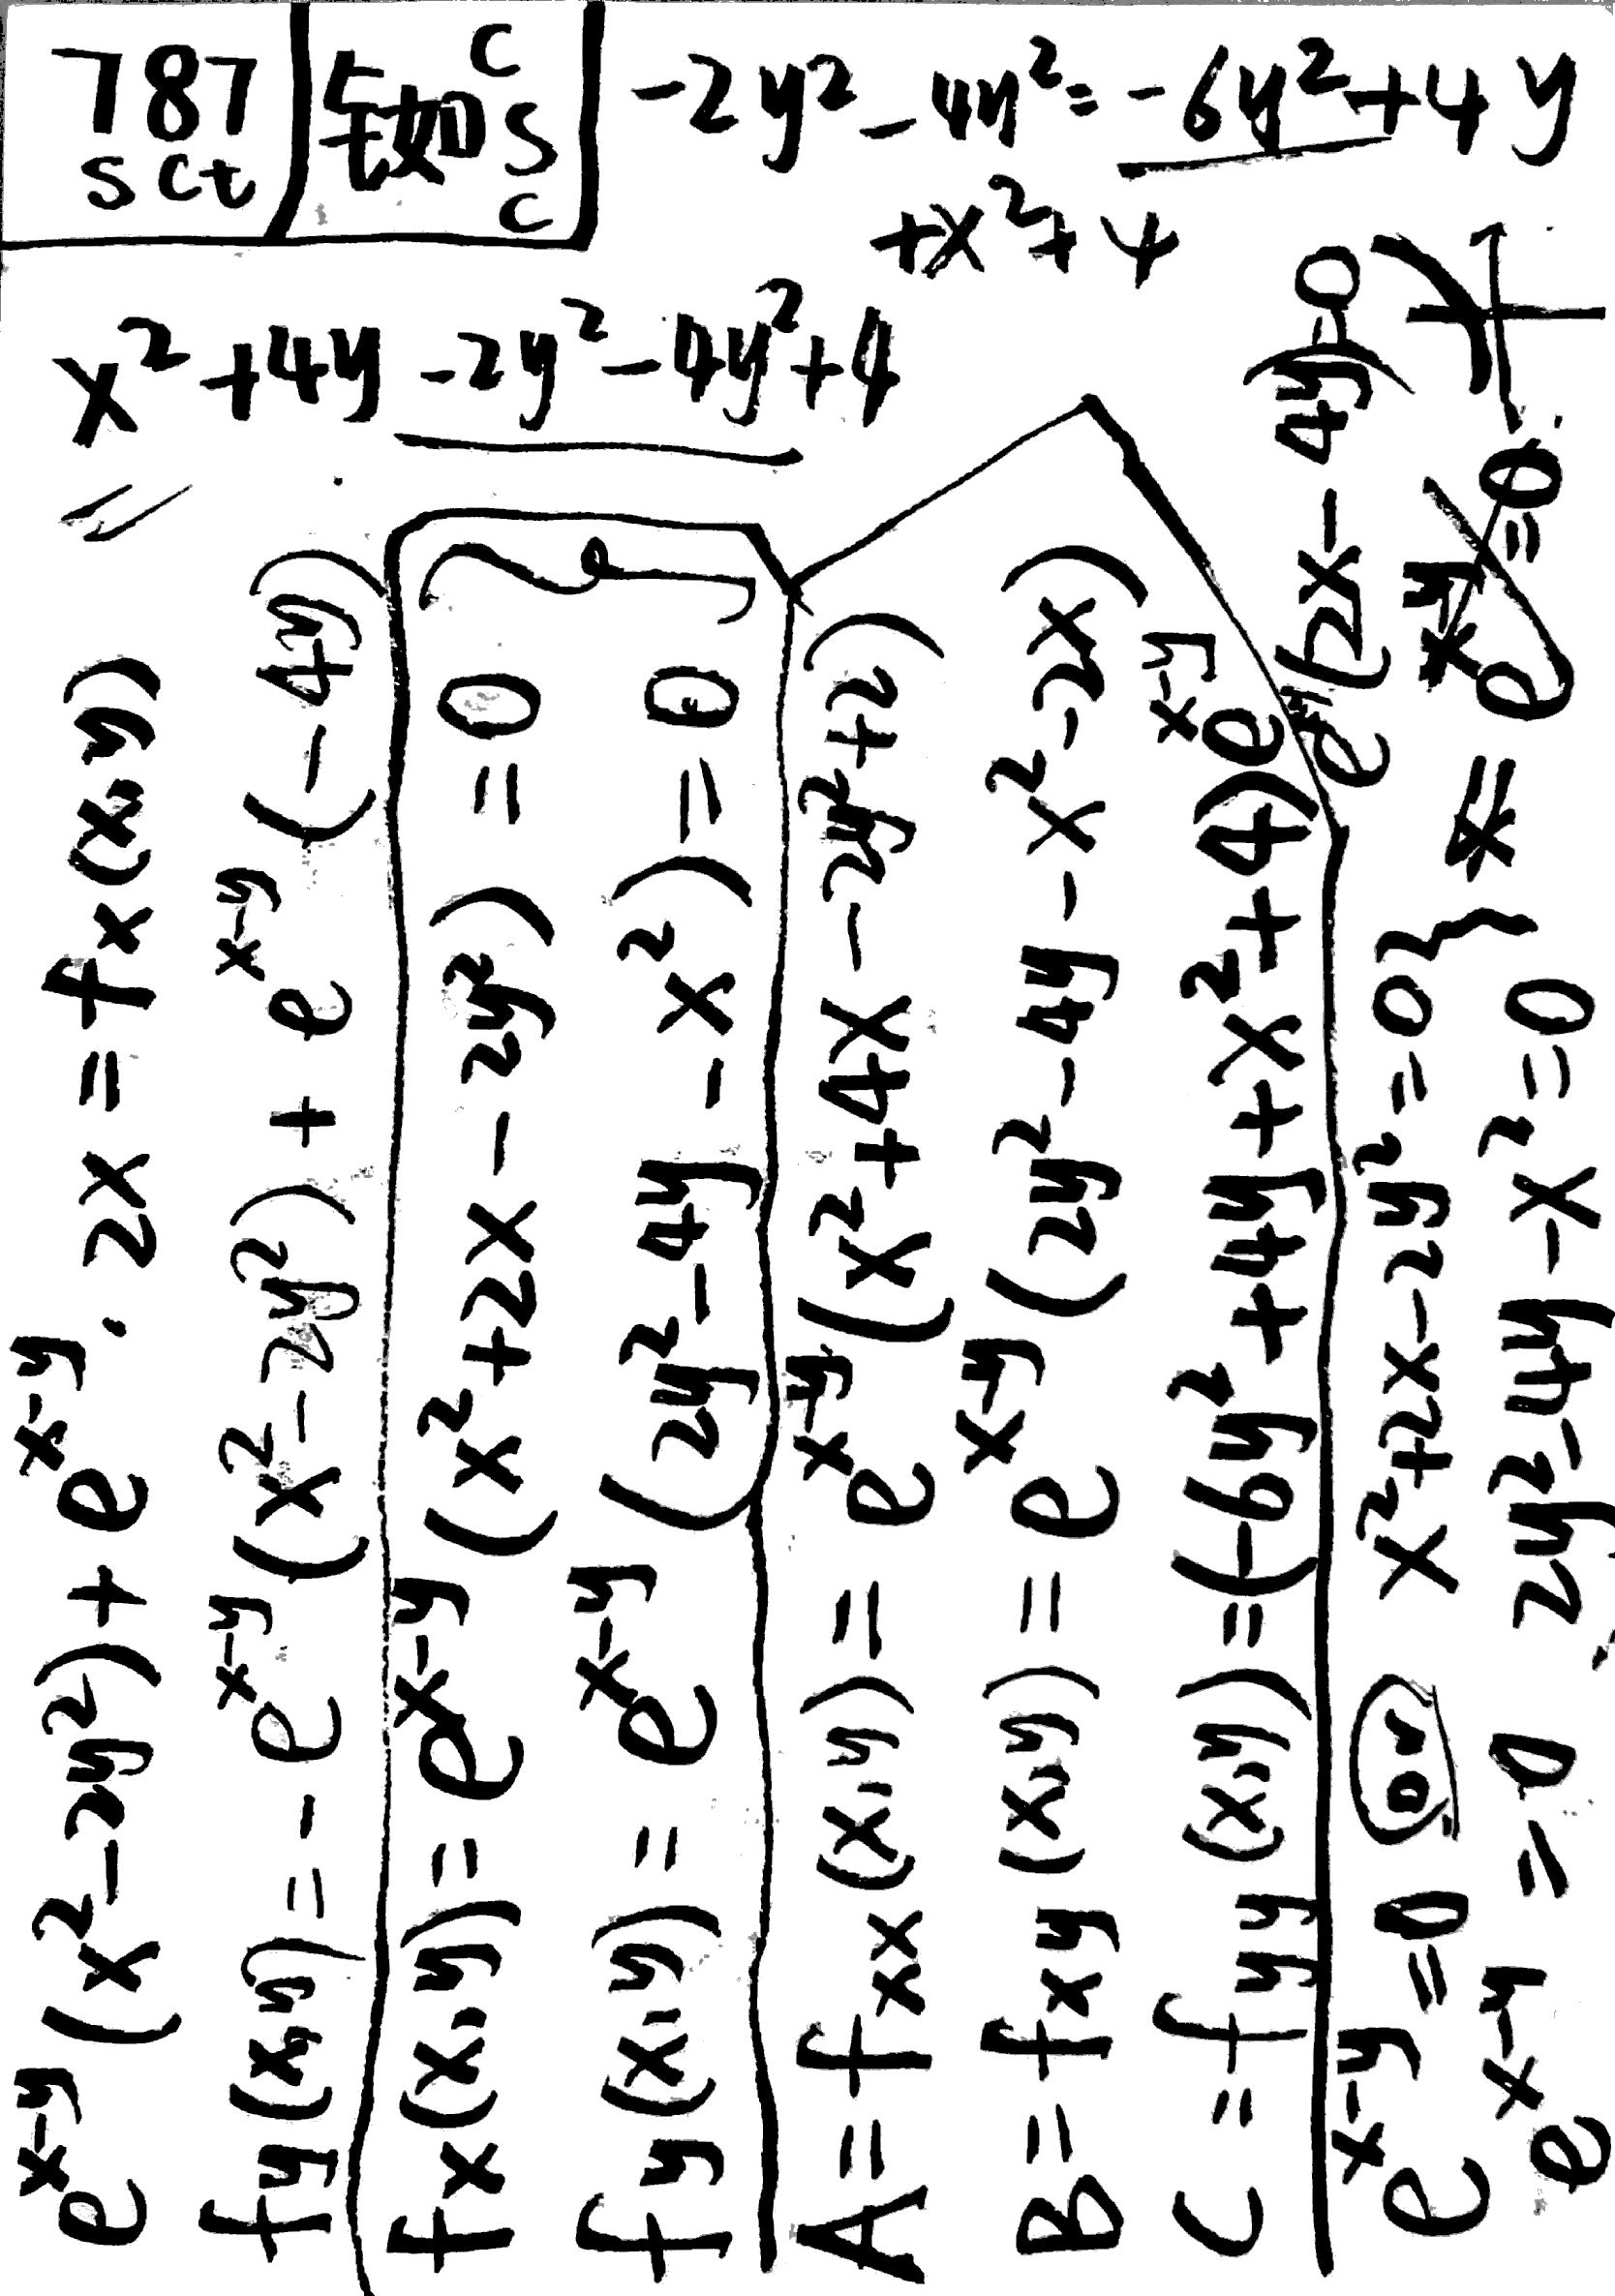 787
sct
铷
C
S
C
-2y²-4y²=-6y²+4y
+x²+4
x²+4y-2y²-4y²+4
e^{x-y}(x²-2y²)+e^{x-y}·2x=fx(x,y)
fy(x,y)=-e^{x-y}(x²-2y²)+e^{x-y}(-4y)
fx(x,y)=e^{x-y}(x²+2x-2y²)=0
fy(x,y)=e^{x-y}(2y²-4y-x²)=0
A=fxx(x,y)=e^{x-y}(x²+4x-2y²+2)
B=fxy(x,y)=e^{x-y}(2y²-4y-x²-2x)
C=fyy(x,y)=(-6y²+4y+x²+4)e^{x-y}
e^{x-y}(2x-4y)=0
e^{x-y}=0 or x²+2x-2y²=0}
e^{x-y}=0 2y²-4y-x²=0